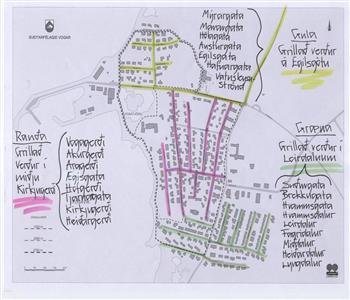 SVEITARFÉLAGIÐ VOGAR
Mýrargata
Marargata
Hólagata
Austurgata
Egilsgata
Hafnargata
Vatnsleysu-
strönd
Gula
Grillað verður
á Egilsgötu
Græna
Grillað verður í
Leirdalnum
Suðurgata
Brekkugata
Hvammsgata
Hvammsdalur
Leirdalur
Fagridalur
Miðdalur
Heiðardalur
Lyngdalur
Rauða
Grillað
verður í
miðju
Kirkjugerði
Vogagerði
Akurgerði
Aragerði
Ægisgata
Hofgerði
Tjarnargata
Kirkjugerði
Heiðargerði